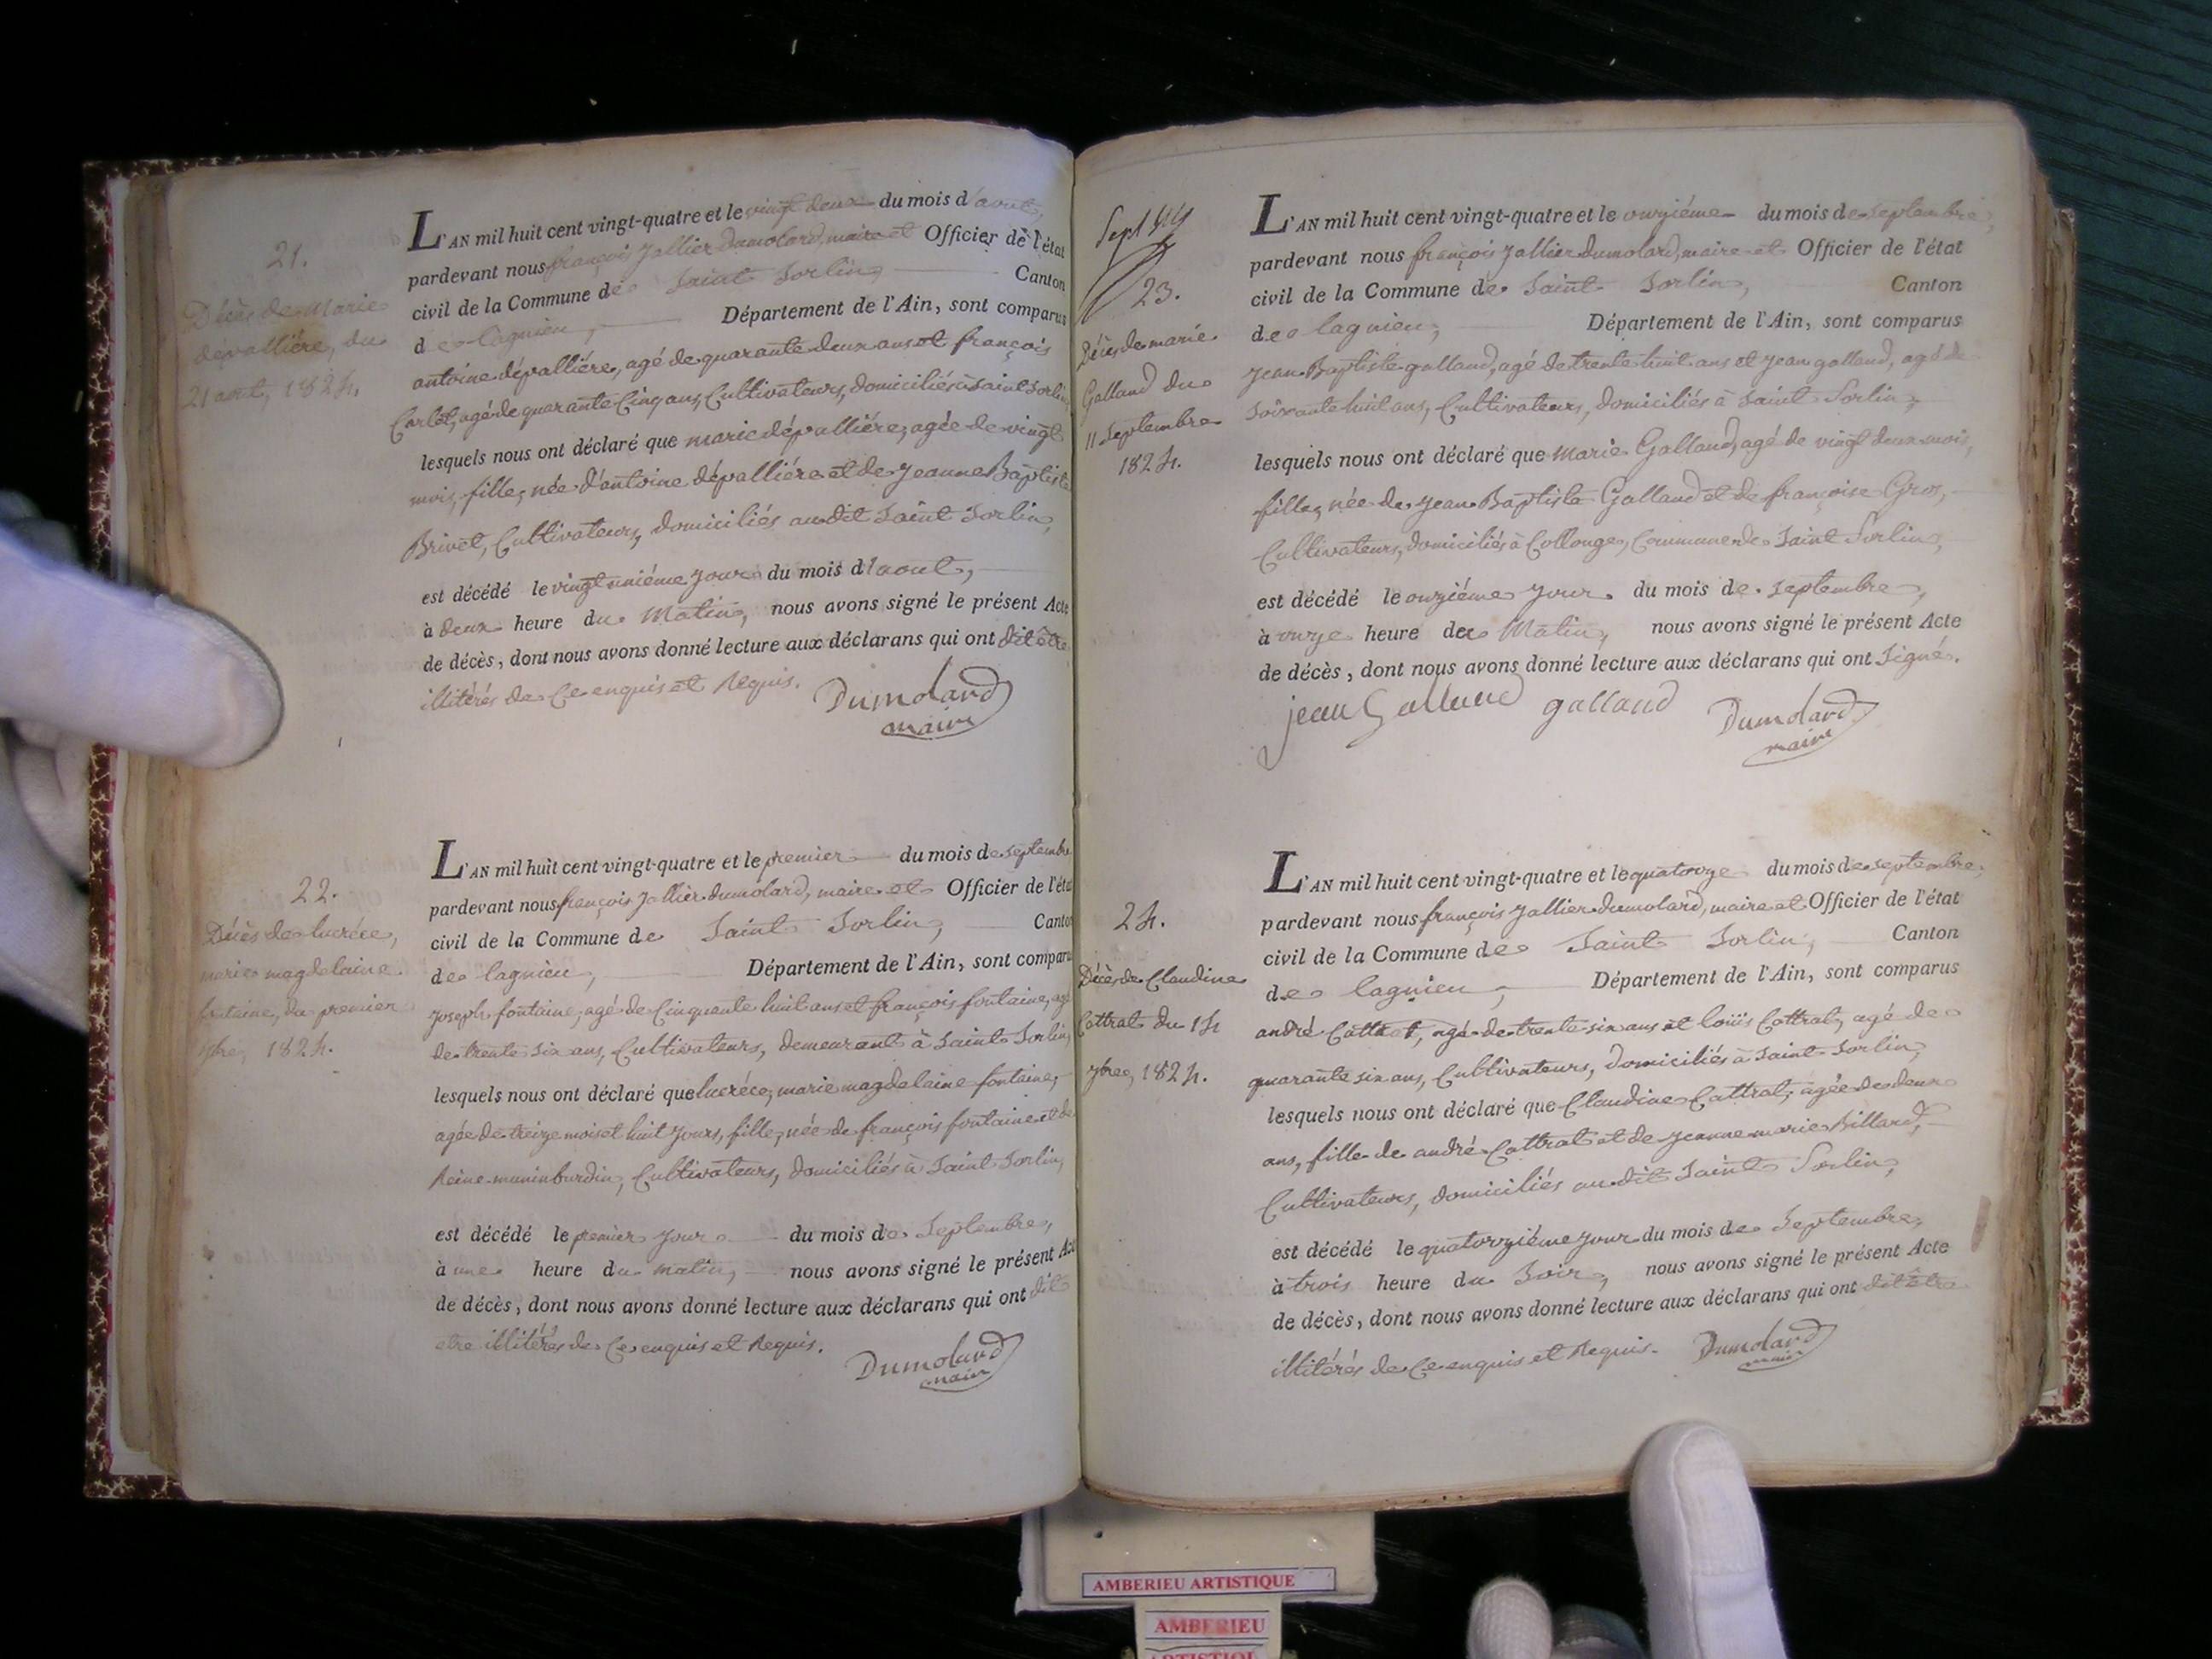 21.
Décès de Marie
dépallière, du
21 aout, 1824.
L'AN mil huit cent vingt-quatre et le vingt deux du mois d'aout,
pardevant nous françois Jallier Dumolard, maire et Officier de l'état
civil de la Commune de Saint Sorlin, Canton
de lagnieu, Département de l'Ain, sont comparus
antoine dépallière, agé de quarante deux ans et françois
Carlet, agé de quarante Cinq ans, Cultivateurs, domiciliés à Saint Sorlin,
lesquels nous ont déclaré que marie dépallière, agée de vingt
mois, fille, née d'antoine dépallière et de jeanne Baptiste
Brivet, Cultivateurs, domiciliés au dit Saint Sorlin,
est décédé le vingt unième jour du mois d'aout,
à deux heure du Matin, nous avons signé le présent Acte
de décès, dont nous avons donné lecture aux déclarans qui ont dit être
illitérés de Ce enquis et Requis.
Dumolard
maire
22.
Décès de lucréce,
marie magdelaine
fontaine, du premier
7bre, 1824.
L'AN mil huit cent vingt-quatre et le premier du mois de septembre
pardevant nous françois Jallier dumolard, maire et Officier de l'état
civil de la Commune de Saint Sorlin, Canton
de lagnieu, Département de l'Ain, sont comparu
joseph fontaine, agé de Cinquante huit ans et françois fontaine, agé
de trente six ans, Cultivateurs, demeurant à Saint Sorlin,
lesquels nous ont déclaré que lucréce, marie magdelaine fontaine,
agée de treize mois et huit jours, fille, née de françois fontaine et de
Reine munin burdin, Cultivateurs, domiciliés à Saint Sorlin,
est décédé le premier jour du mois de Septembre,
à une heure du matin, nous avons signé le présent Acte
de décès, dont nous avons donné lecture aux déclarans qui ont dit
etre illitérés de Ce enquis et Requis.
Dumolard
maire
Sept
23.
Décès de marie
Galland du
11 Septembre
1824.
L'AN mil huit cent vingt-quatre et le onzième du mois de septembre,
pardevant nous françois Jallier dumolard, maire et Officier de l'état
civil de la Commune de Saint Sorlin, Canton
de lagnieu, Département de l'Ain, sont comparus
jean Baptiste galland, agé de trente huit ans et jean galland, agé de
soixante huit ans, Cultivateurs, domiciliés à Saint Sorlin,
lesquels nous ont déclaré que Marie Galland, agé de vingt deux mois,
fille, née de jean Baptiste Galland et de françoise Gros,
Cultivateurs, domiciliés à Collonge, Commune de Saint Sorlin,
est décédé le onzième jour du mois de Septembre,
à onze heure du Matin, nous avons signé le présent Acte
de décès, dont nous avons donné lecture aux déclarans qui ont Signé.
jean Galland galland Dumolard
maire
24.
Décès de Claudine
Cottrat du 14
7bre, 1824.
L'AN mil huit cent vingt-quatre et le quatorze du mois de septembre,
pardevant nous françois Jallier dumolard, maire et Officier de l'état
civil de la Commune de Saint Sorlin, Canton
de lagnieu, Département de l'Ain, sont comparus
andré Cottrat, agé de trente six ans et loüis Cottrat, agé de
quarante six ans, Cultivateurs, domiciliés à Saint Sorlin,
lesquels nous ont déclaré que Claudine Cottrat, agée de deux
ans, fille de andré Cottrat et de jeanne marie Billard,
Cultivateurs, domiciliés au dit Saint Sorlin,
est décédé le quatorzième jour du mois de Septembre,
à trois heure du Soir, nous avons signé le présent Acte
de décès, dont nous avons donné lecture aux déclarans qui ont dit être
illitérés de Ce enquis et Requis. Dumolard
maire
AMBERIEU ARTISTIQUE
AMBERIEU
ARTISTIQUE